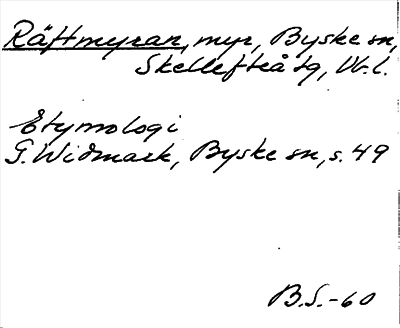 Räftmyran, myr, Byske sn,
Skellefteå tg, Vb.l.
Etymologi
G. Widmark, Byske sn, s. 49
B.S.-60